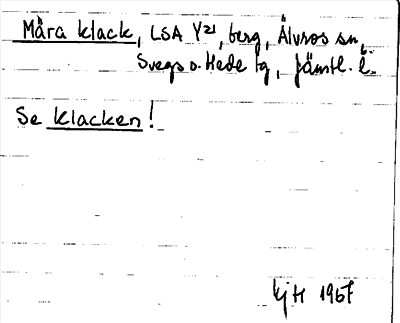 Måra klack, LSA Y21, berg, Älvros sn,
Svegs o. Hede tg, Jämtl. l.
Se klacken!
kjH 1967